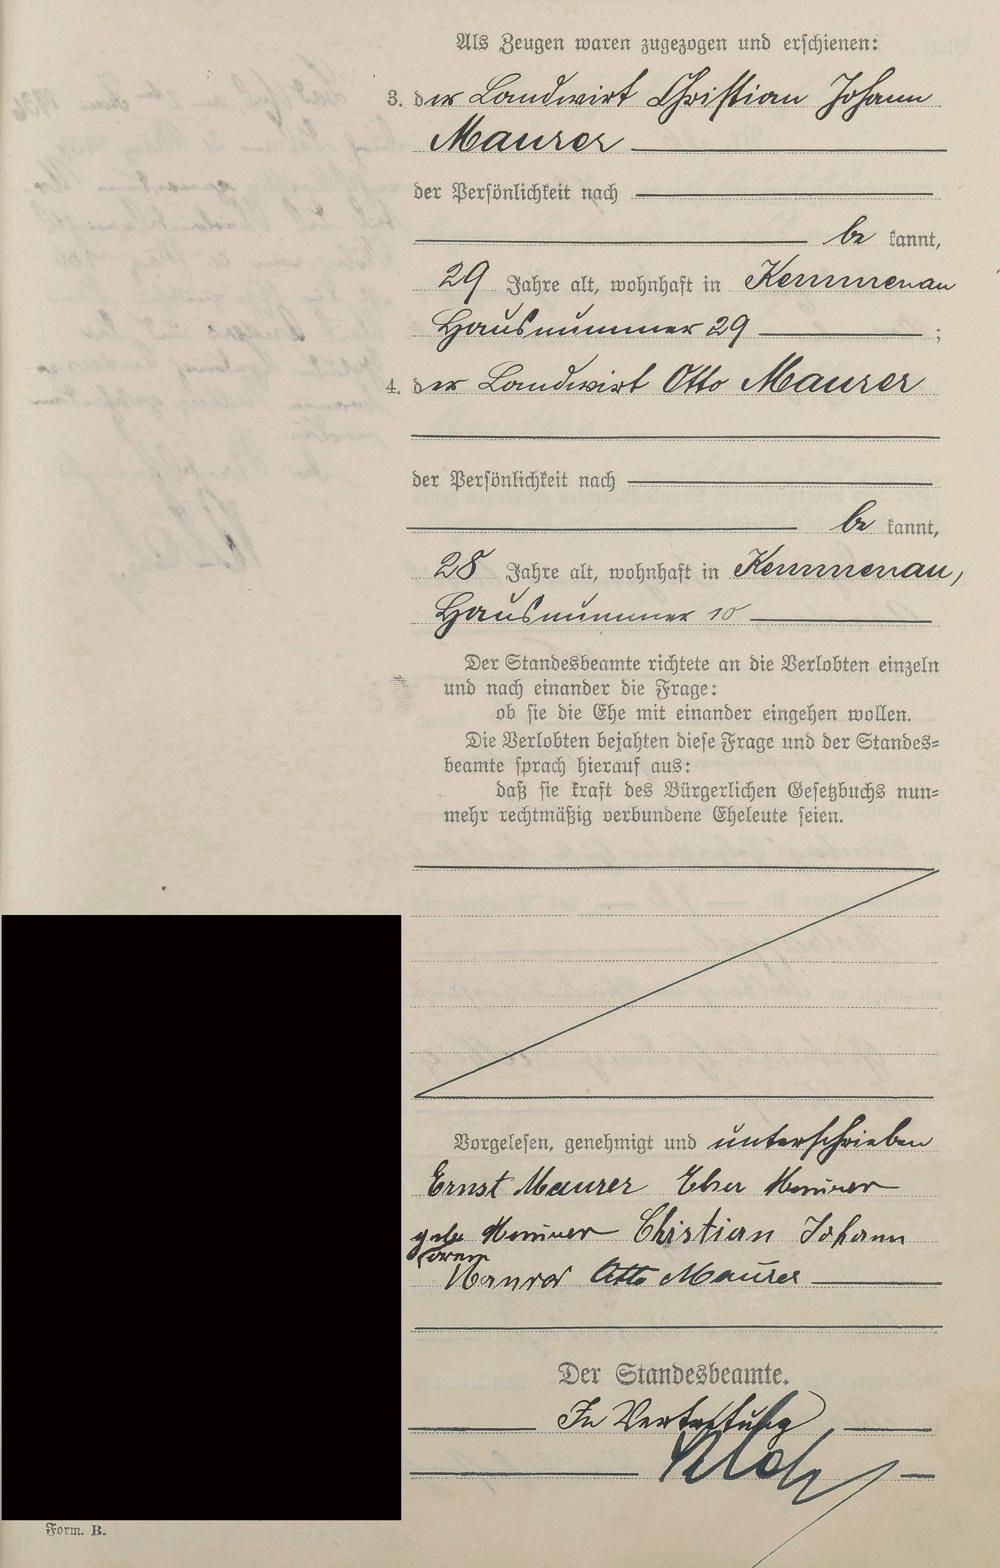 Als Zeugen waren zugezogen und erschienen:
3. der Landwirt Christian Johann
Maurer
der Persönlichkeit nach
be kannt,
29 Jahre alt, wohnhaft in Kemmenau
Hausnummer 29 ;
4. der Landwirt Otto Maurer
der Persönlichkeit nach
be kannt,
28 Jahre alt, wohnhaft in Kemmenau,
Hausnummer 10
Der Standesbeamte richtete an die Verlobten einzeln
und nach einander die Frage:
ob sie die Ehe mit einander eingehen wollen.
Die Verlobten bejahten diese Frage und der Standes-
beamte sprach hierauf aus:
daß sie kraft des Bürgerlichen Gesetzbuchs nun-
mehr rechtmäßig verbundene Eheleute seien.
Vorgelesen, genehmigt und unterschrieben
Ernst Maurer Maurer
Christian Johann
Otto Maurer
Der Standesbeamte.
In Vertretung
Form. B.